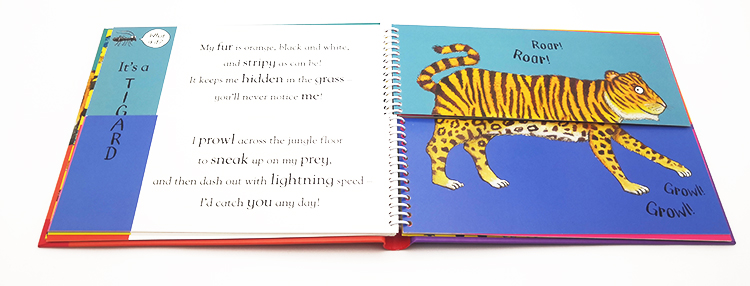 It's a
TIGARD
My fur is orange, black and white,
and stripy as can be!
It keeps me hidden in the grass –
you'll never notice me!
I prowl across the jungle floor
to sneak up on my prey,
and then dash out with lightning speed –
I'd catch you any day!
Roar!
Roar!
Growl!
Growl!